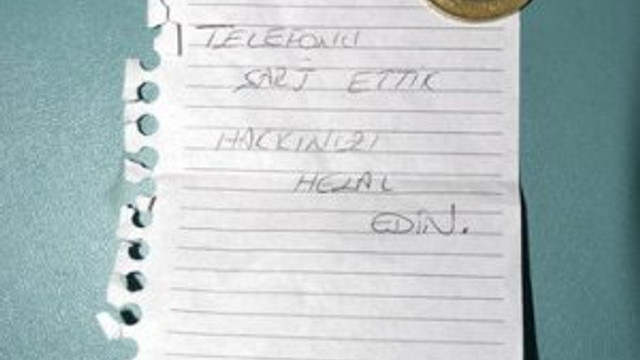 TELEFONU
ŞARJ ETTİK
HAKKINIZI
HELAL
EDİN.